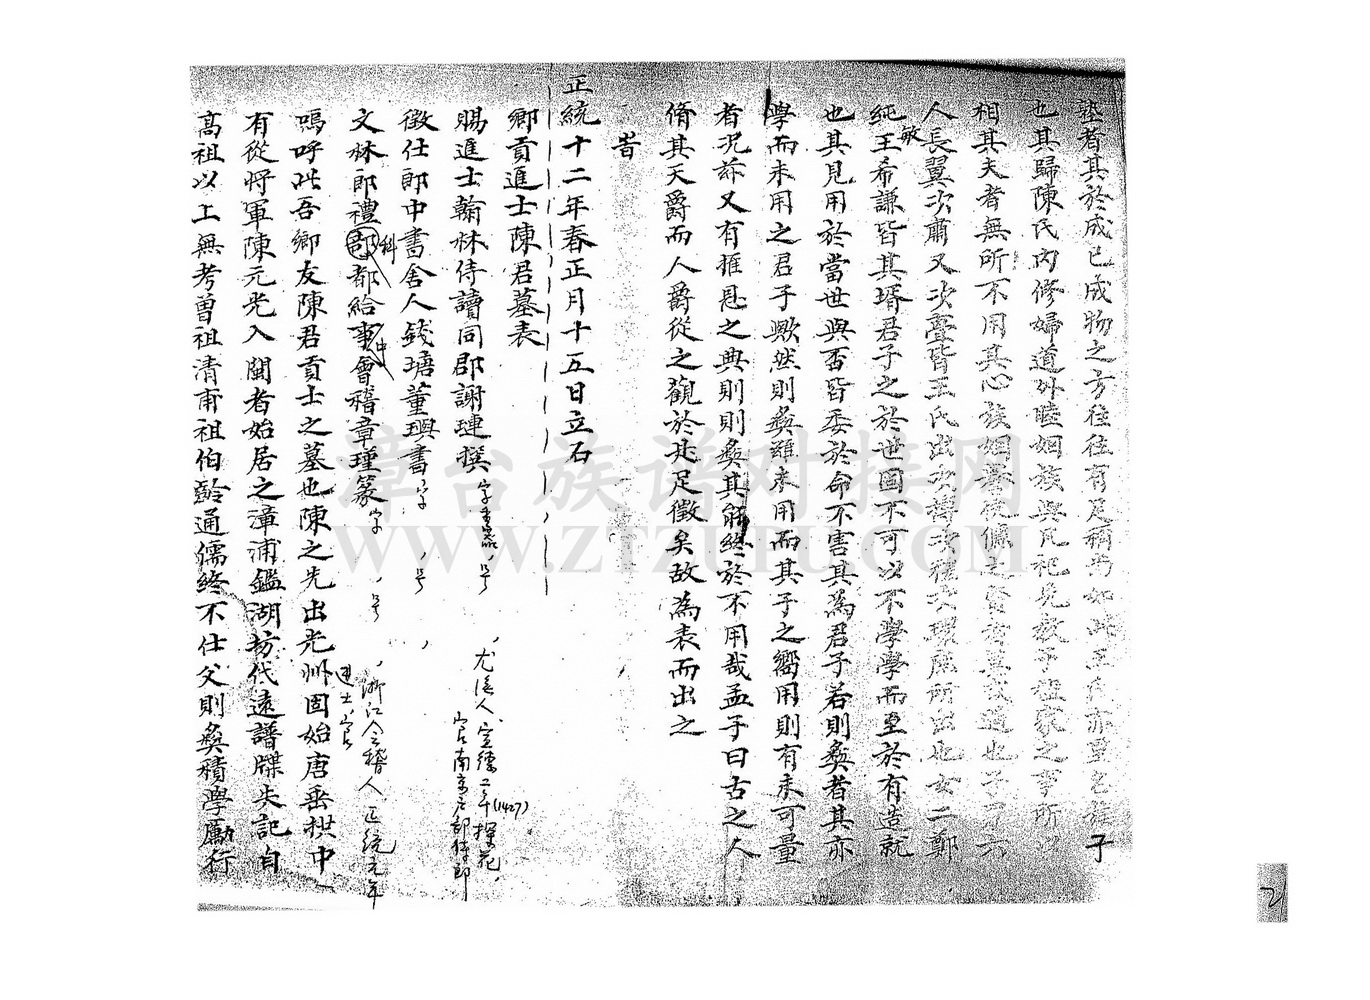 塾者其於成已成物之方往往有足稱焉如
子
也其歸陳氏內修婦道外睦姻族與凡祀先教子租家之事所
相其夫者無所不用其心族姻
人長翼次肅又次
王氏出次
所出也女二鄭
敏
純王希謙皆其壻君子之於世固不可以不學學而至於有造就
也其見用於當世與否皆委於命不害其為君子若則彝者其亦
學而未用之君子歟然則彝雖未用而其子之嚮用則有未可量
者況訴又有推恩之典則則彝其能終於不用哉孟子曰古之人
脩其天爵而人爵從之觀於此足徵矣故為表而出之
旹
正統十二年春正月十五日立石
鄉貢進士陳君墓表
賜進士翰林侍讀同郡謝璉撰
字重器,号
,尤溪人,宣德二年(1427)探花,
官南京户部侍郎
徵仕郎中書舍人錢塘董璵書
字 ,号 ,
文林郎禮部都給事會稽章瑾篆
科
中
字 ,号 ,浙江会稽人,正统元年
进士,官
嗚呼此吾鄉友陳君貢士之墓也陳之先出光州固始唐垂拱中
有從將軍陳元光入閩者始居之漳浦鑑湖坊代遠譜牒失記自
高祖以上無考曾祖清甫祖伯齡通儒終不仕父則彝積學勵行
漳台族谱对接网
WWW.ZTZUPU.COM
21